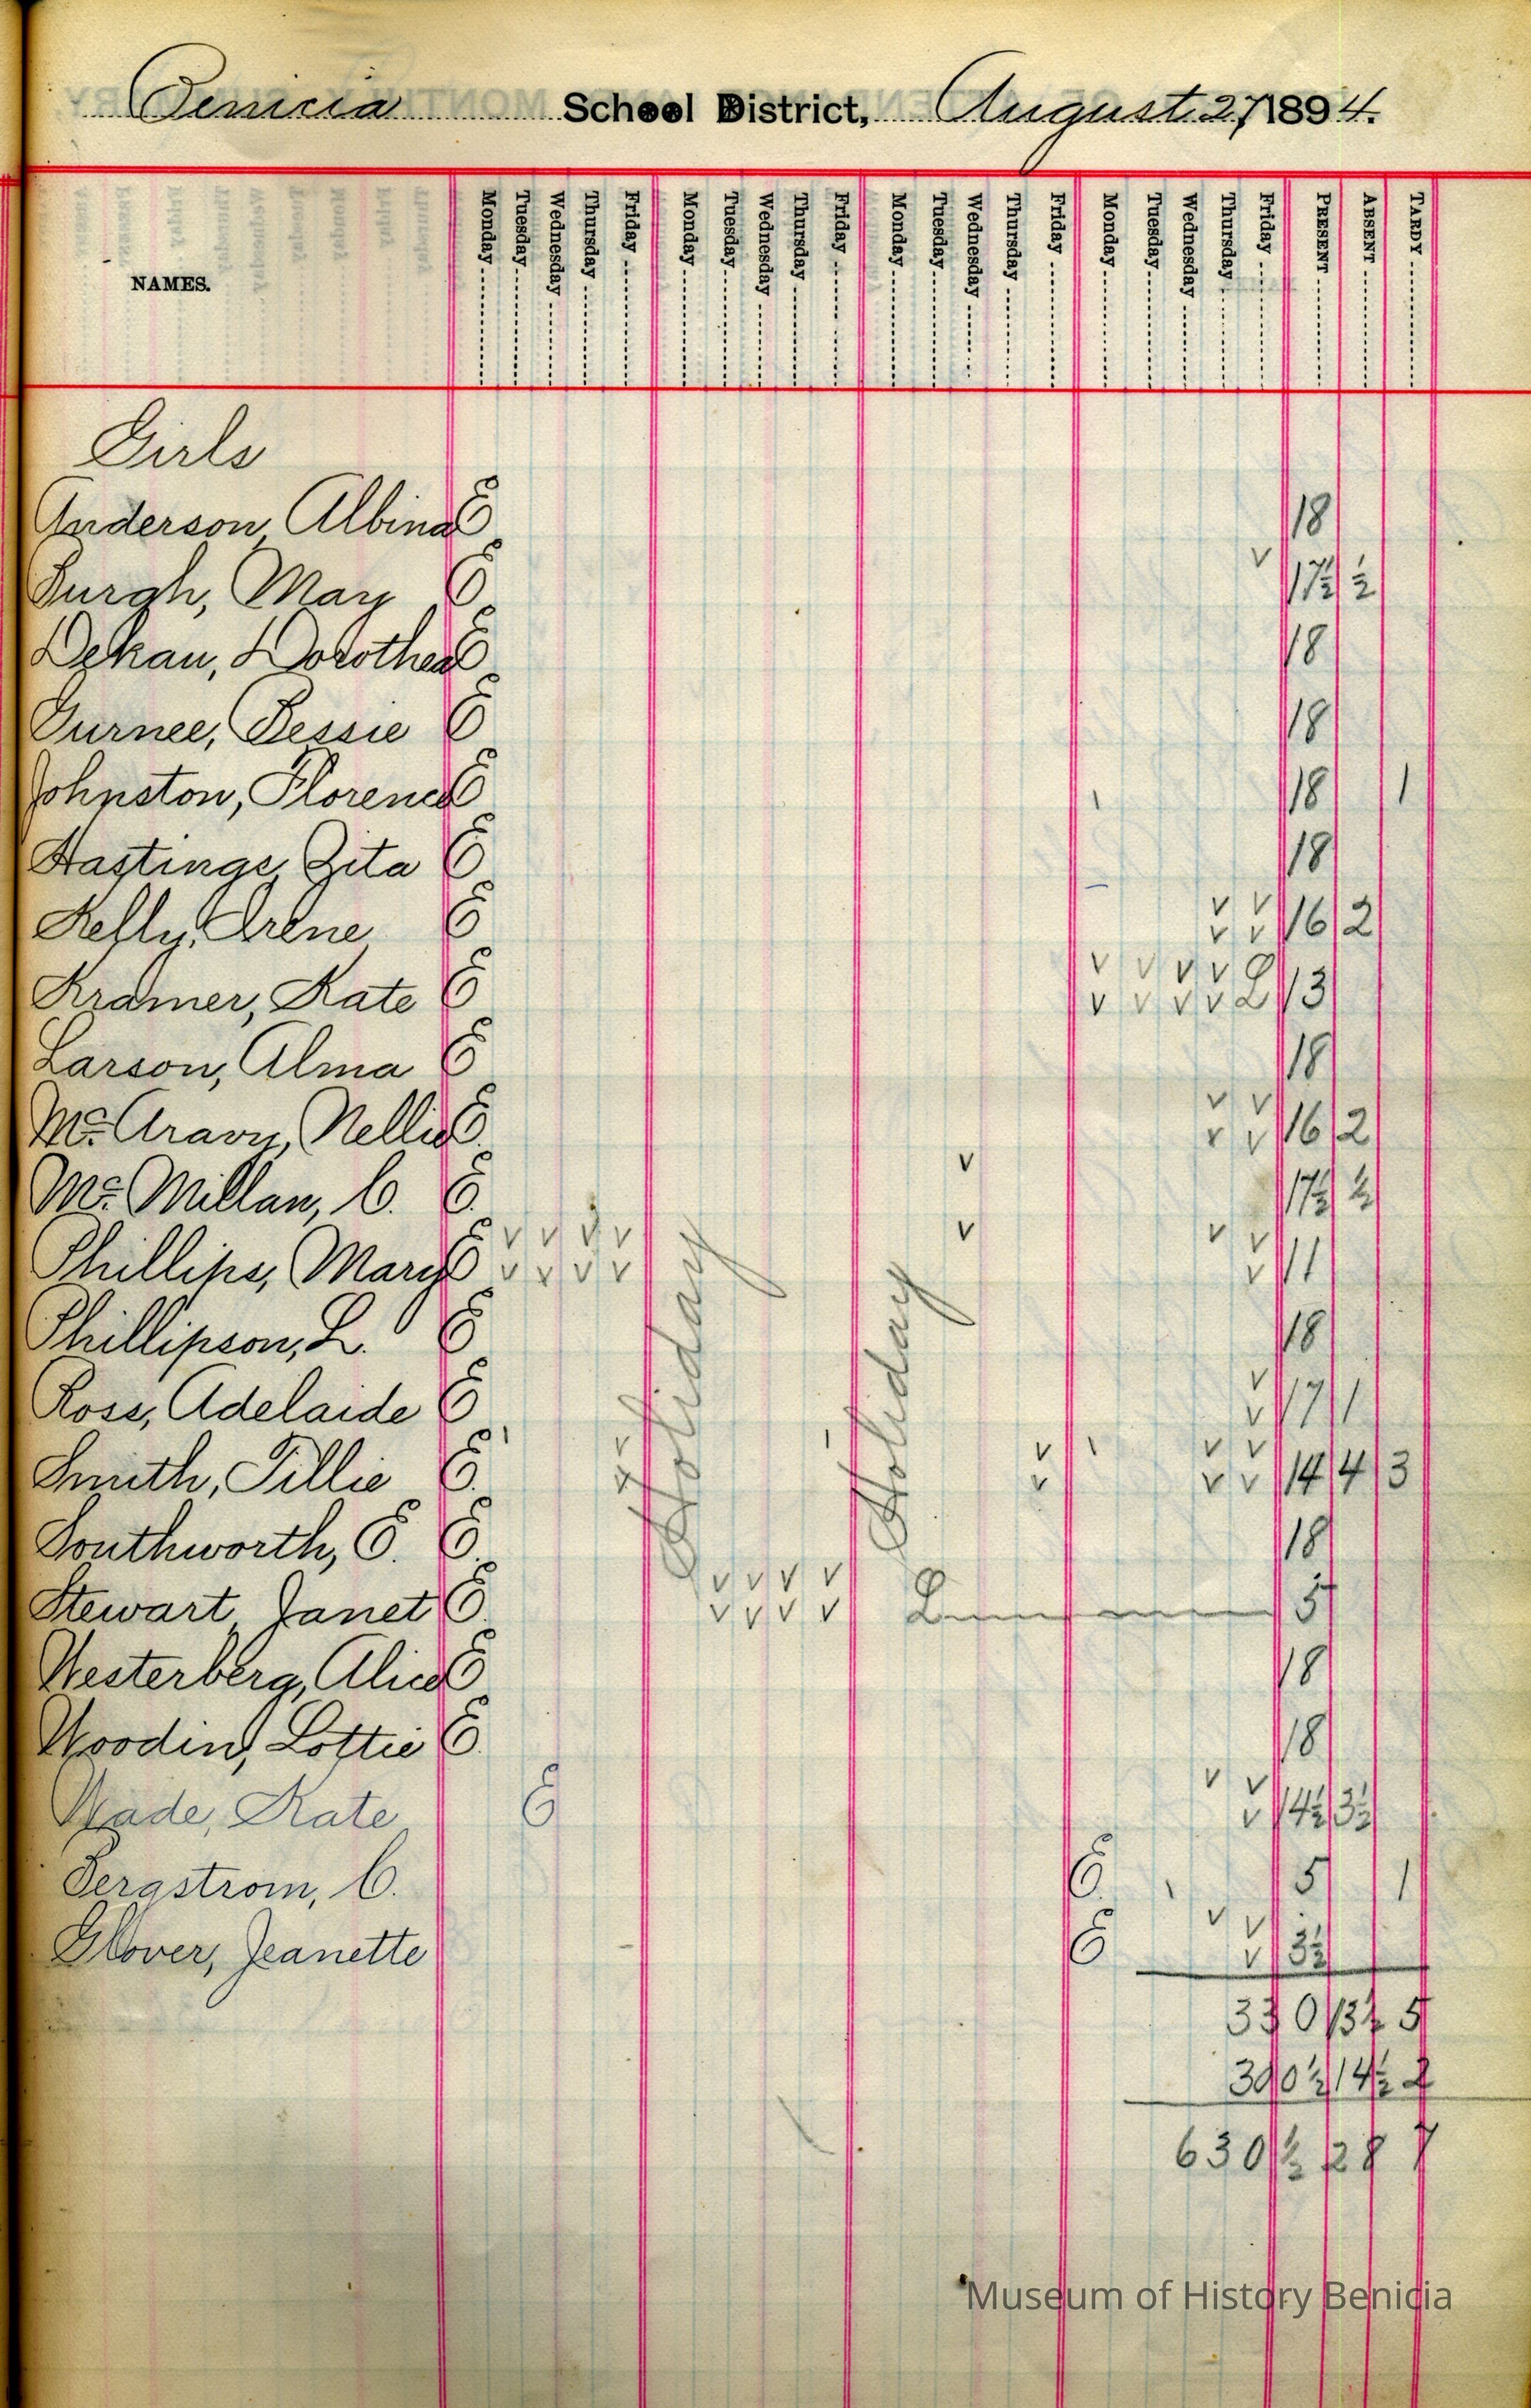 Benicia School District, August 27, 1894.
NAMES.
Monday Tuesday Wednesday Thursday Friday Monday Tuesday Wednesday Thursday Friday Monday Tuesday Wednesday Thursday Friday Monday Tuesday Wednesday Thursday Friday PRESENT ABSENT TARDY
Girls
Anderson, Albina E 18
Burgh, May E v 17½ ½
Dekau, Dorothea E 18
Gurnee, Bessie E 18
Johnston, Florence E 18 1
Hastings, Zita E 18
Kelly, Irene E v v v v 16 2
Kramer, Kate E v v v v v v v v L 13
Larson, Alma E 18
Mc. Aravy, Nellie E v v v v 16 2
Mc. Millan, C. E v 17½ ½
Phillips, Mary E v v v v v v v v v v v v 11
Phillipson, L. E 18
Ross, Adelaide E v v 17 1
Smith, Tillie E v v v v v v v v 14 4 3
Holiday
Holiday
Southworth, E. E 18
Stewart, Janet E v v v v v v v v L 5
Westerberg, Alice E 18
Woodin, Lottie E 18
Wade, Kate E v v v 14½ 3½
Bergstrom, C. E 5 1
Glover, Jeanette E v v v 3½
330 13½ 5
300½ 14½ 2
630½ 28 7
Museum of History Benicia